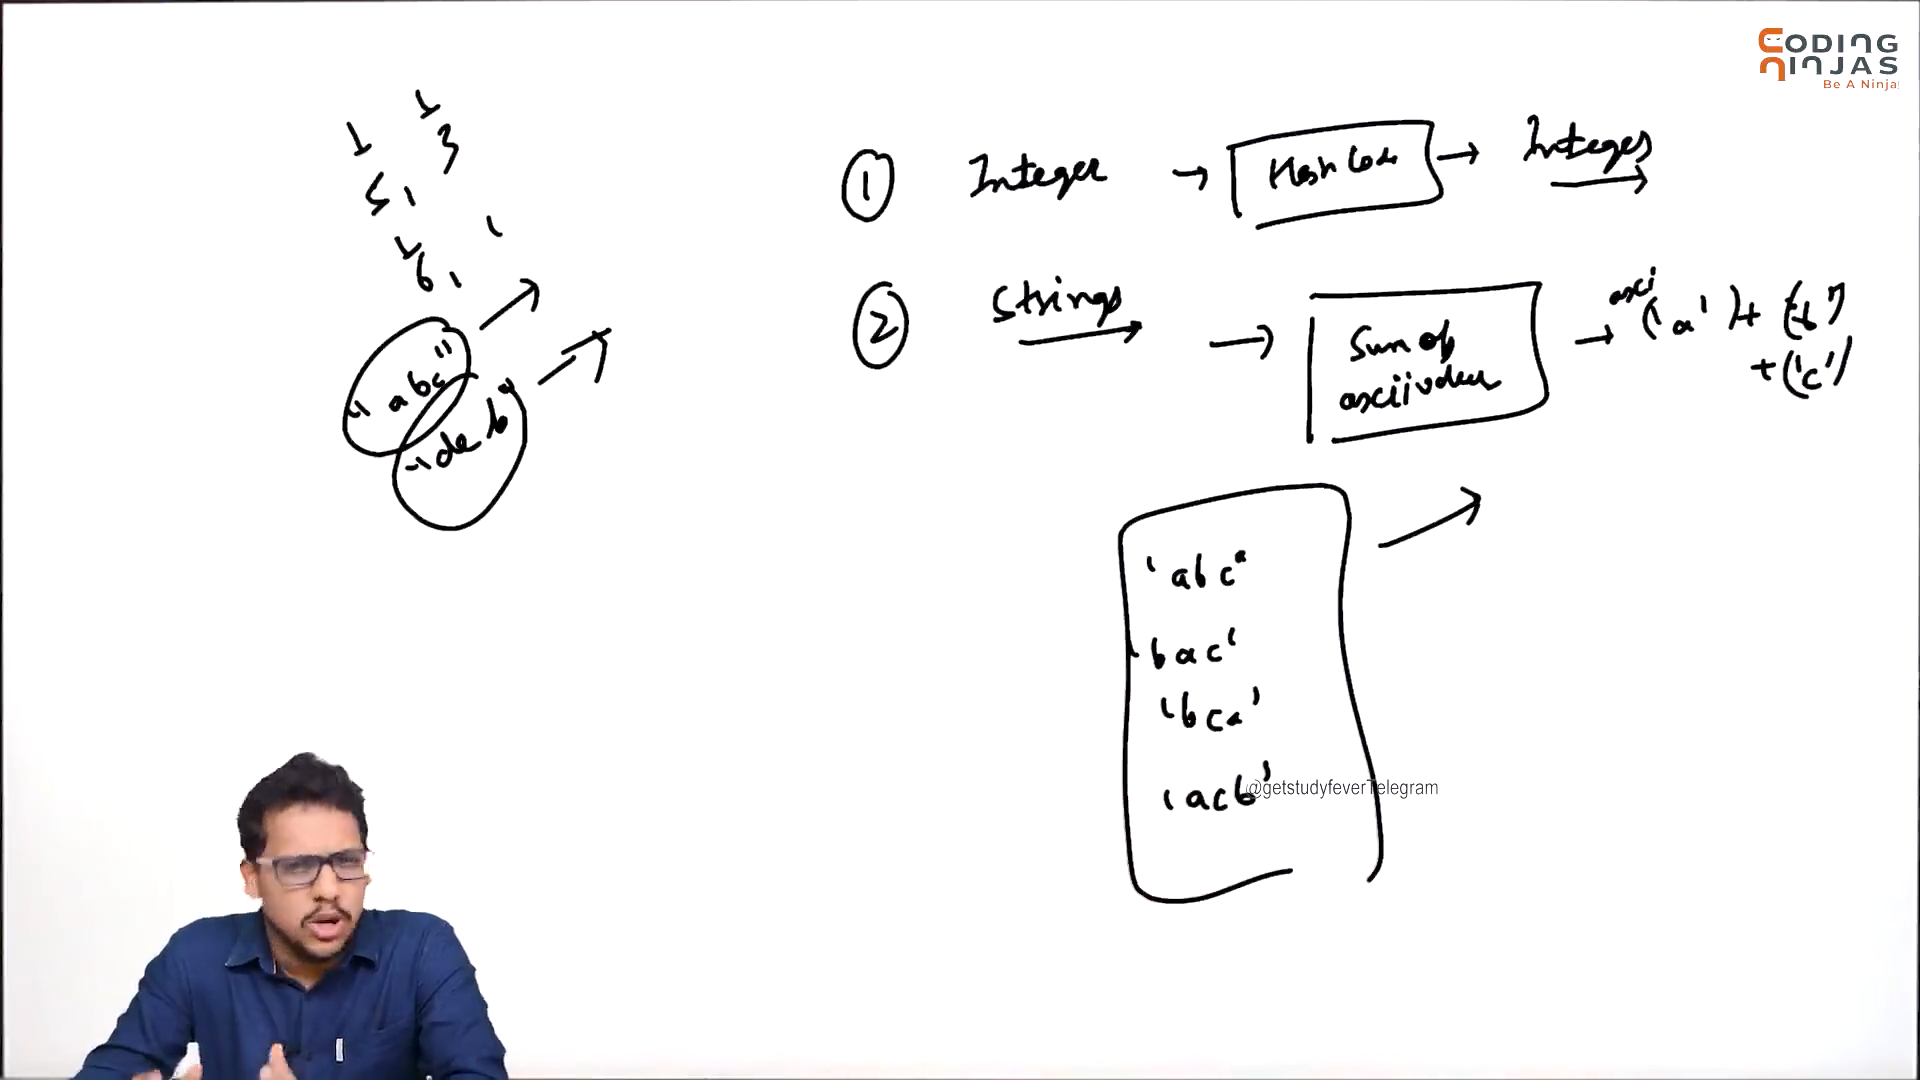 CODING
NINJAS
Be A Ninja
1 1
3
5 1
1 1
6 1
"abc"
"de b"
① Integer → Hash Code → Integer
② Strings → Sum of → ascii ('a') + ('b')
+ ('c')
'abc"
'bac'
'bca'
'acb'
@getstudyfeverTelegram